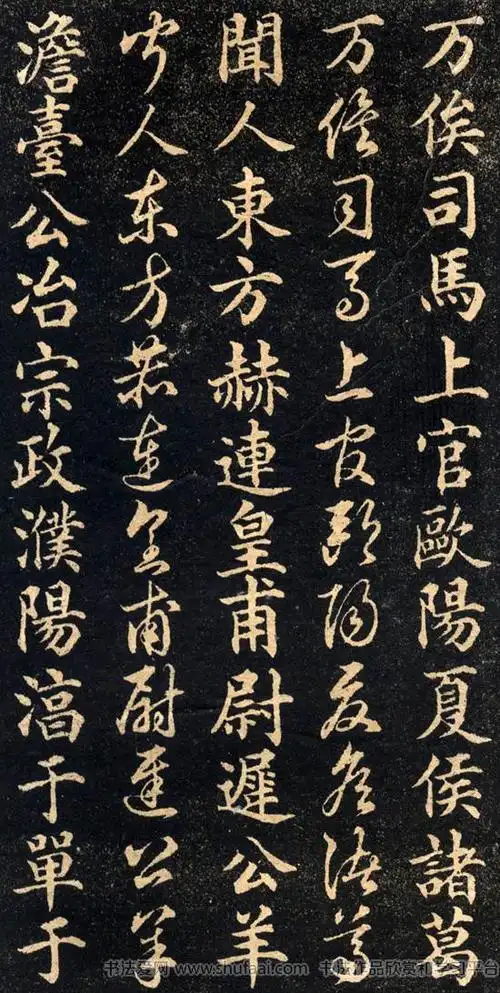 万俟司馬上官歐陽夏侯諸葛
万俟司馬上官歐陽夏侯諸葛
聞人東方赫連皇甫尉遲公羊
聞人東方赫連皇甫尉遲公羊
澹臺公冶宗政濮陽淳于單于
书法爱网 www.shufaai.com 书法作品欣赏和学习平台